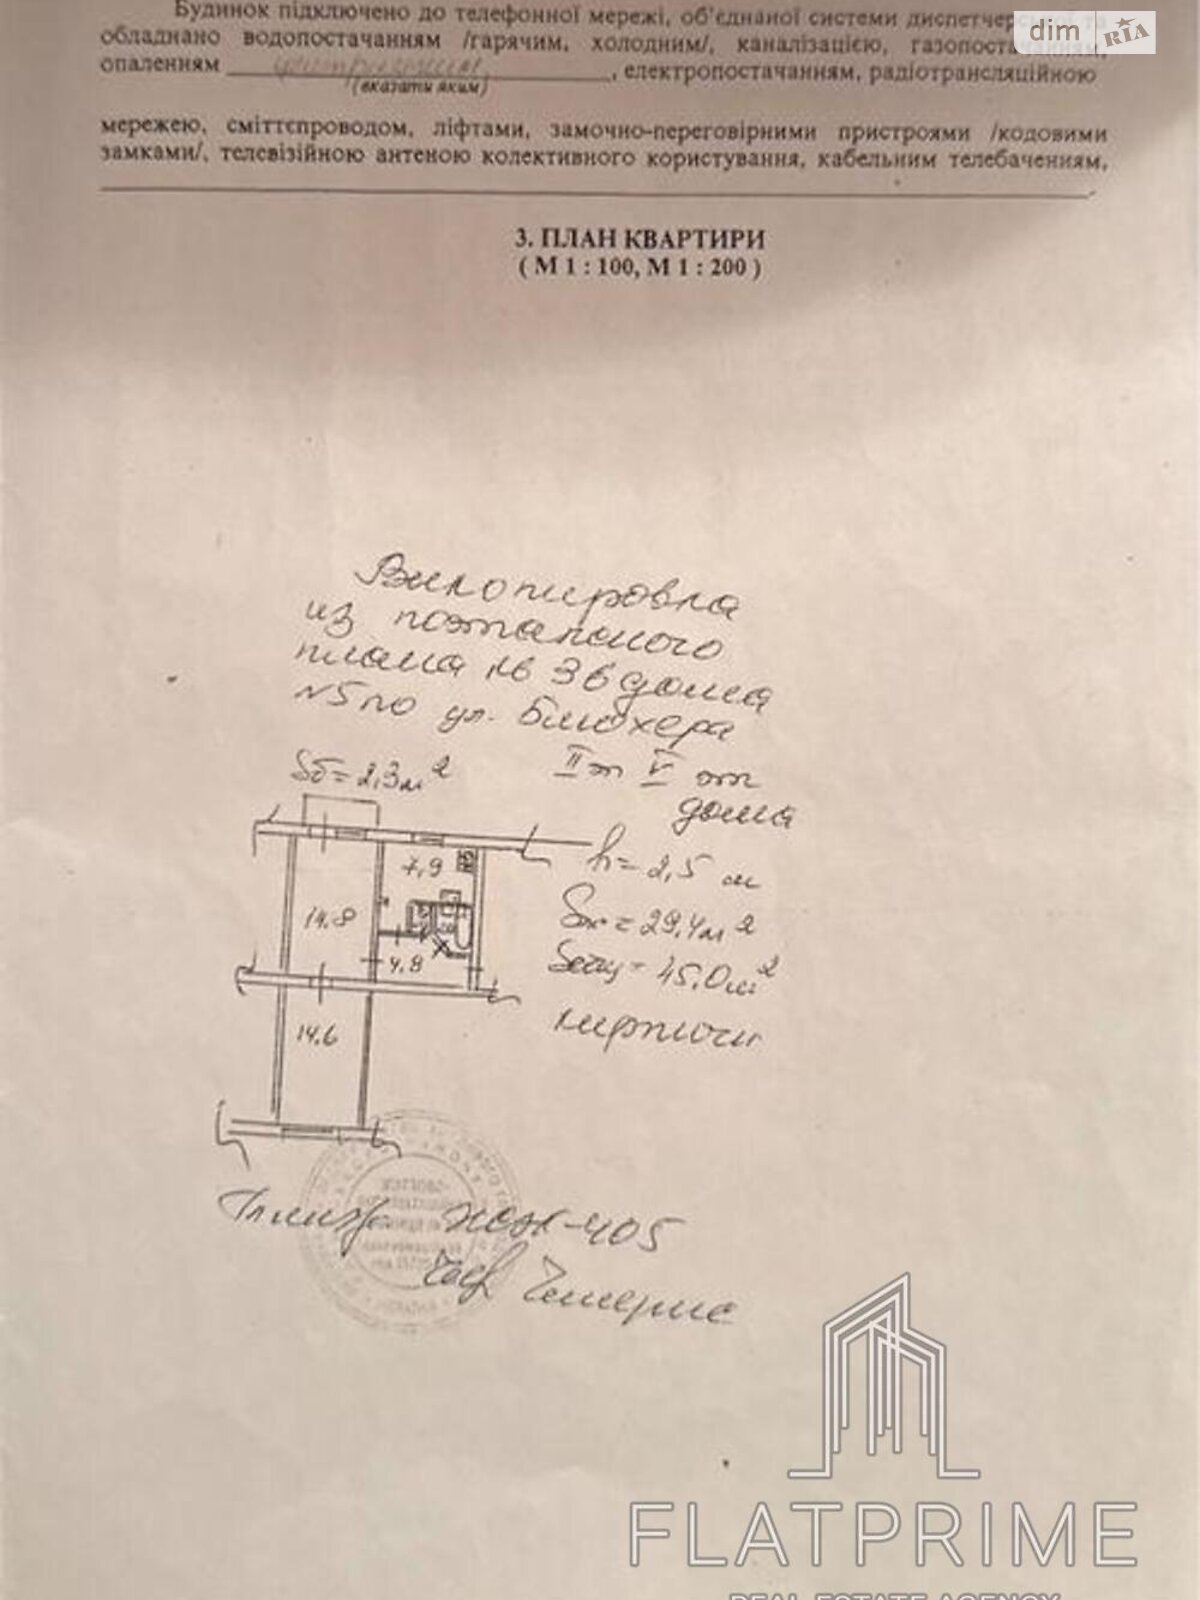 Будинок підключено до телефонної мережі, об'єднаної системи диспетчерської та
dim RIA
обладнано водопостачанням /гарячим, холодним/, каналізацією, газопостачанням,
опаленням центральним, електропостачанням, радіотрансляційною
(вказати яким)
мережею, сміттєпроводом, ліфтами, замочно-переговірними пристроями /кодовими
замками/, телевізійною антеною колективного користування, кабельним телебаченням,
3. ПЛАН КВАРТИРИ
( М 1 : 100, М 1 : 200 )
Выкопировка
из поэтапного
плана кв 36 дома
№5 по ул. Блюхера
II эт V эт
дома
Sб = 2,3 м²
h = 2,5 м
Sж = 29,4 м²
Sобщ = 45,0 м²
кирпичн
7,9
14,8
4,8
14,6
ЖЭК-405
FLATPRIME
REAL ESTATE AGENCY